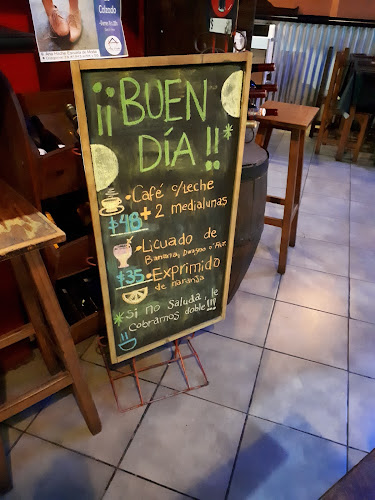 Calzado
¡¡BUEN
DÍA!!
• Café c/leche
$48 + 2 medialunas
• Licuado de
Banana, Durazno o Frut
$35 • Exprimido
de naranja
* Si no saluda, le
cobramos doble!!!